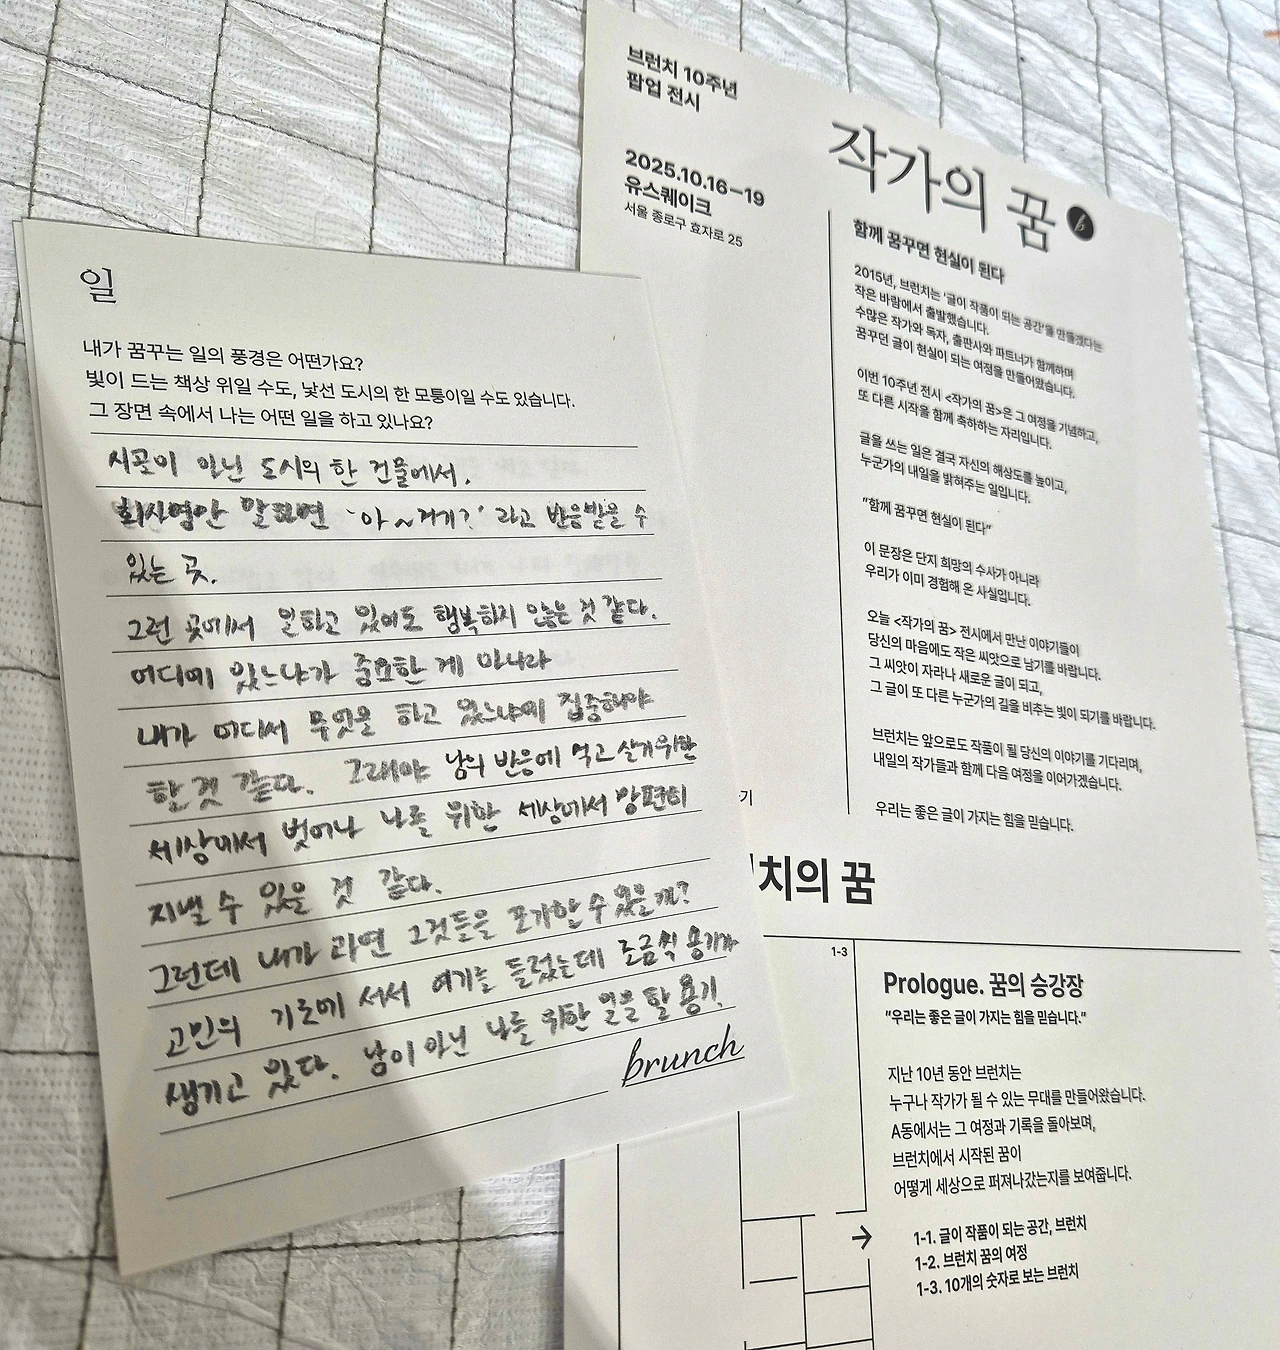 일
내가 꿈꾸는 일의 풍경은 어떤가요?
빛이 드는 책상 위일 수도, 낯선 도시의 한 모퉁이일 수도 있습니다.
그 장면 속에서 나는 어떤 일을 하고 있나요?
시골이 아닌 도시의 한 건물에서.
회사명만 말하면 '아~거기?' 라고 반응받을 수
있는 곳.
그런 곳에서 일하고 있어도 행복하지 않는 것 같다.
어디에 있느냐가 중요한 게 아니라
내가 어디서 무엇을 하고 있느냐에 집중해야
할 것 같다. 그래야 남의 반응에 먹고 살기위한
세상에서 벗어나 나를 위한 세상에서 맘편히
지낼 수 있을 것 같다.
그런데 내가 과연 그것들을 포기할 수 있을까?
고민의 기로에 서서 여기를 들렀는데 조금씩 용기가
생기고 있다. 남이 아닌 나를 위한 일을 할 용기.
brunch
브런치 10주년
팝업 전시
2025.10.16–19
유스퀘이크
서울 종로구 효자로 25
작가의 꿈
b
함께 꿈꾸면 현실이 된다
2015년, 브런치는 '글이 작품이 되는 공간'을 만들겠다는
작은 바람에서 출발했습니다.
수많은 작가와 독자, 출판사와 파트너가 함께하며
꿈꾸던 글이 현실이 되는 여정을 만들어왔습니다.
이번 10주년 전시 <작가의 꿈>은 그 여정을 기념하고,
또 다른 시작을 함께 축하하는 자리입니다.
글을 쓰는 일은 결국 자신의 해상도를 높이고,
누군가의 내일을 밝혀주는 일입니다.
"함께 꿈꾸면 현실이 된다"
이 문장은 단지 희망의 수사가 아니라
우리가 이미 경험해 온 사실입니다.
오늘 <작가의 꿈> 전시에서 만난 이야기들이
당신의 마음에도 작은 씨앗으로 남기를 바랍니다.
그 씨앗이 자라나 새로운 글이 되고,
그 글이 또 다른 누군가의 길을 비추는 빛이 되기를 바랍니다.
브런치는 앞으로도 작품이 될 당신의 이야기를 기다리며,
내일의 작가들과 함께 다음 여정을 이어가겠습니다.
우리는 좋은 글이 가지는 힘을 믿습니다.
기
치의 꿈
1-3
Prologue. 꿈의 승강장
"우리는 좋은 글이 가지는 힘을 믿습니다."
지난 10년 동안 브런치는
누구나 작가가 될 수 있는 무대를 만들어왔습니다.
A동에서는 그 여정과 기록을 돌아보며,
브런치에서 시작된 꿈이
어떻게 세상으로 퍼져나갔는지를 보여줍니다.
→
1-1. 글이 작품이 되는 공간, 브런치
1-2. 브런치 꿈의 여정
1-3. 10개의 숫자로 보는 브런치